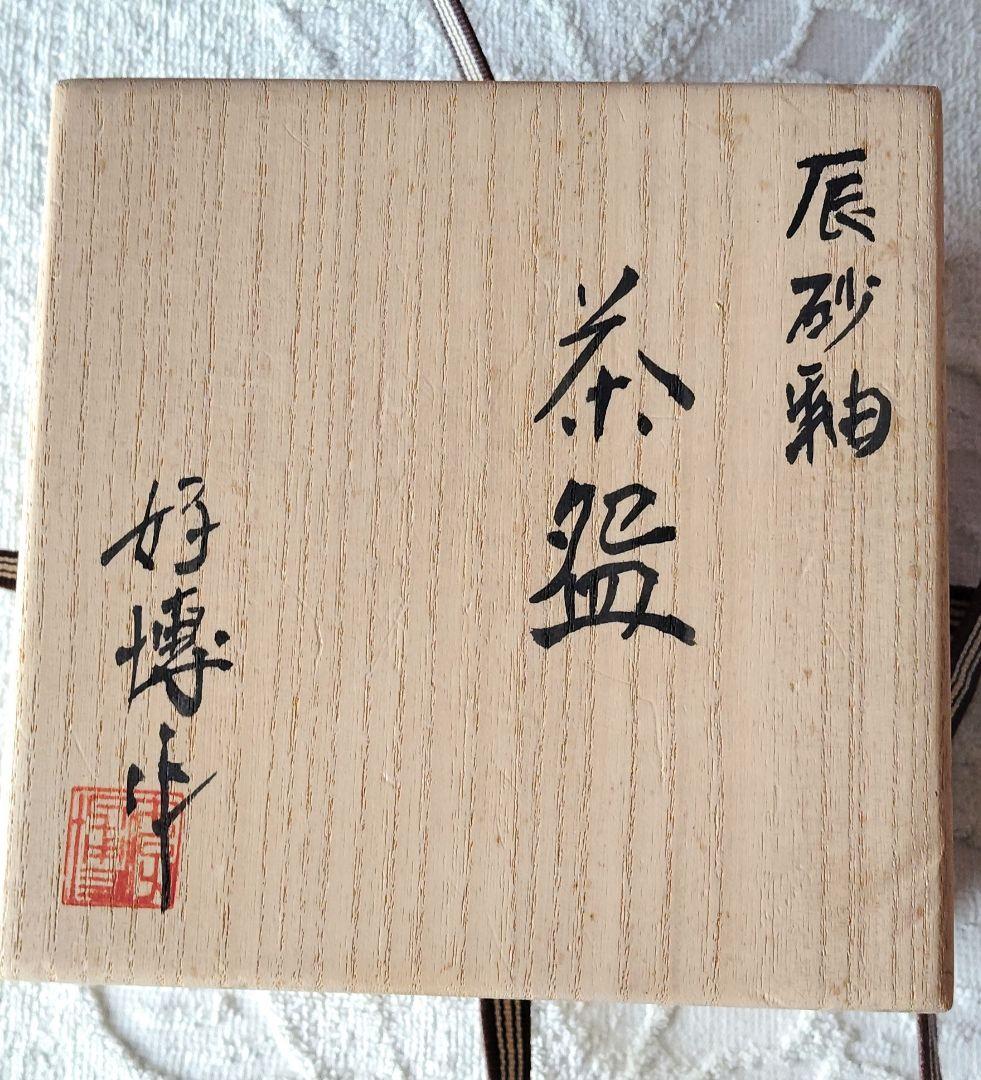 辰砂釉
茶盌
好博作